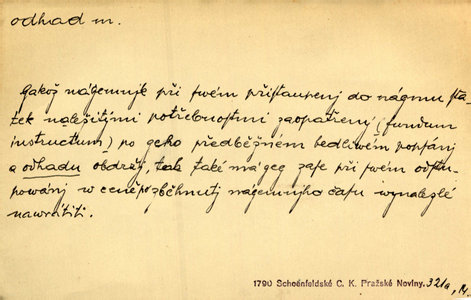 odhad m.
Gakož nágemnjk při swém přistaupenj do nágmu sta-
tek náležitými potřebnostmi zaopatřený (fundum
instructum) po geho předběžném bedliwém popsánj
a odhadu obdržj, tak také má geg zase při swém odstu-
powánj w ceně po zběhnutj nágemnjho času wynalezlé
nawrátiti.
1790 Schoenfeldské C. K. Pražské Noviny. 321a, 14.